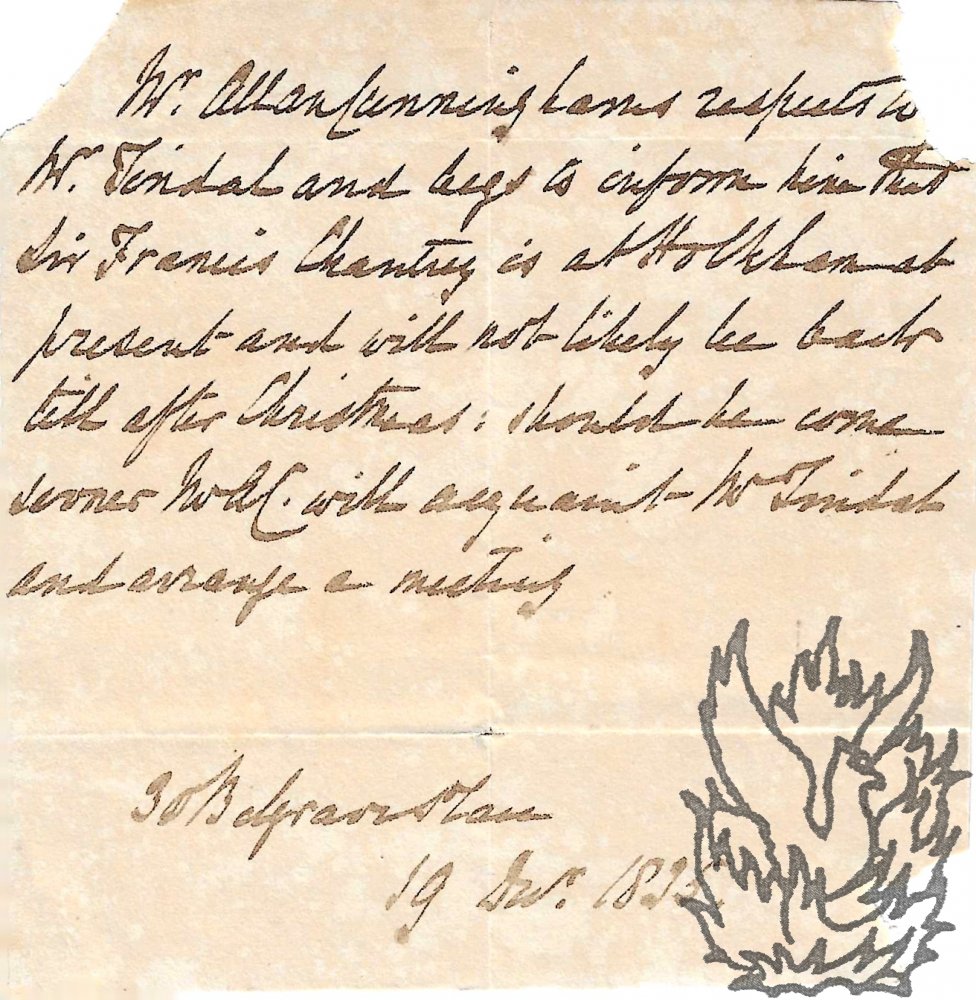 Mr. Allan Cunninghams respects to
Mr. Tindal and begs to inform him that
Sir Francis Chantrey is at Holkham at
present and will not likely be back
till after Christmas: should he come
sooner Mr A C. will acquaint Mr Tindal
and arrange a meeting
30 Belgrave Place
19 Decr.